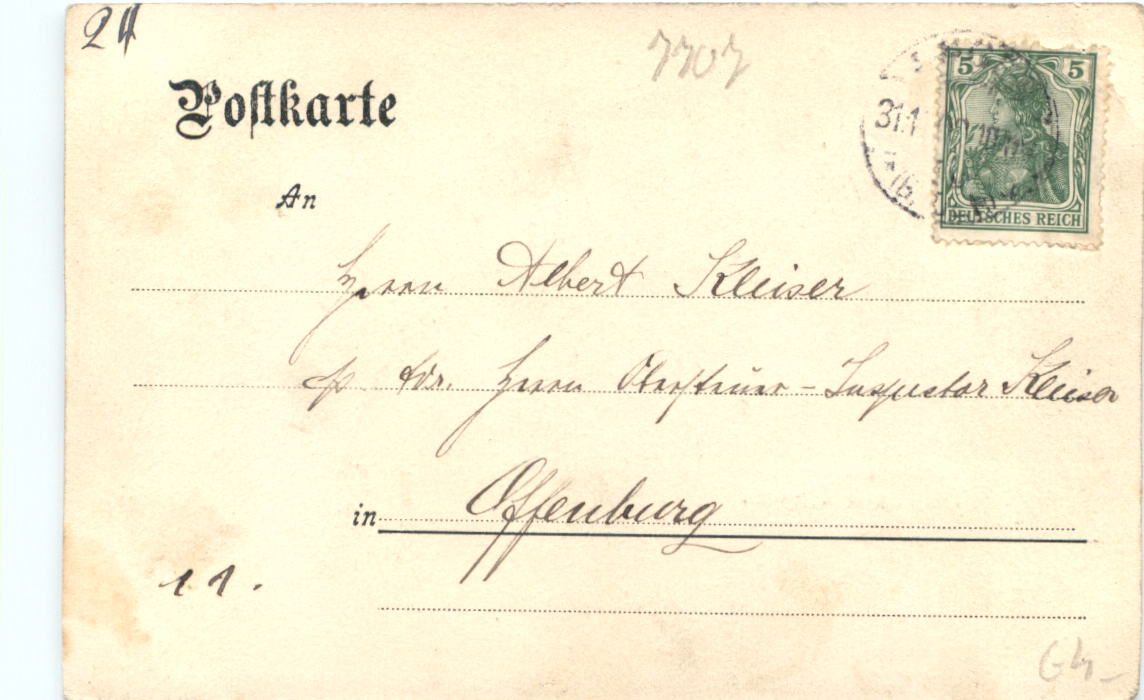 24
7707
Postkarte
5 5
DEUTSCHES REICH
31.1
An
Herrn Albert Kleiser
Adr. Herrn Obersteuer-Inspector Kleiser
in Offenburg
11.